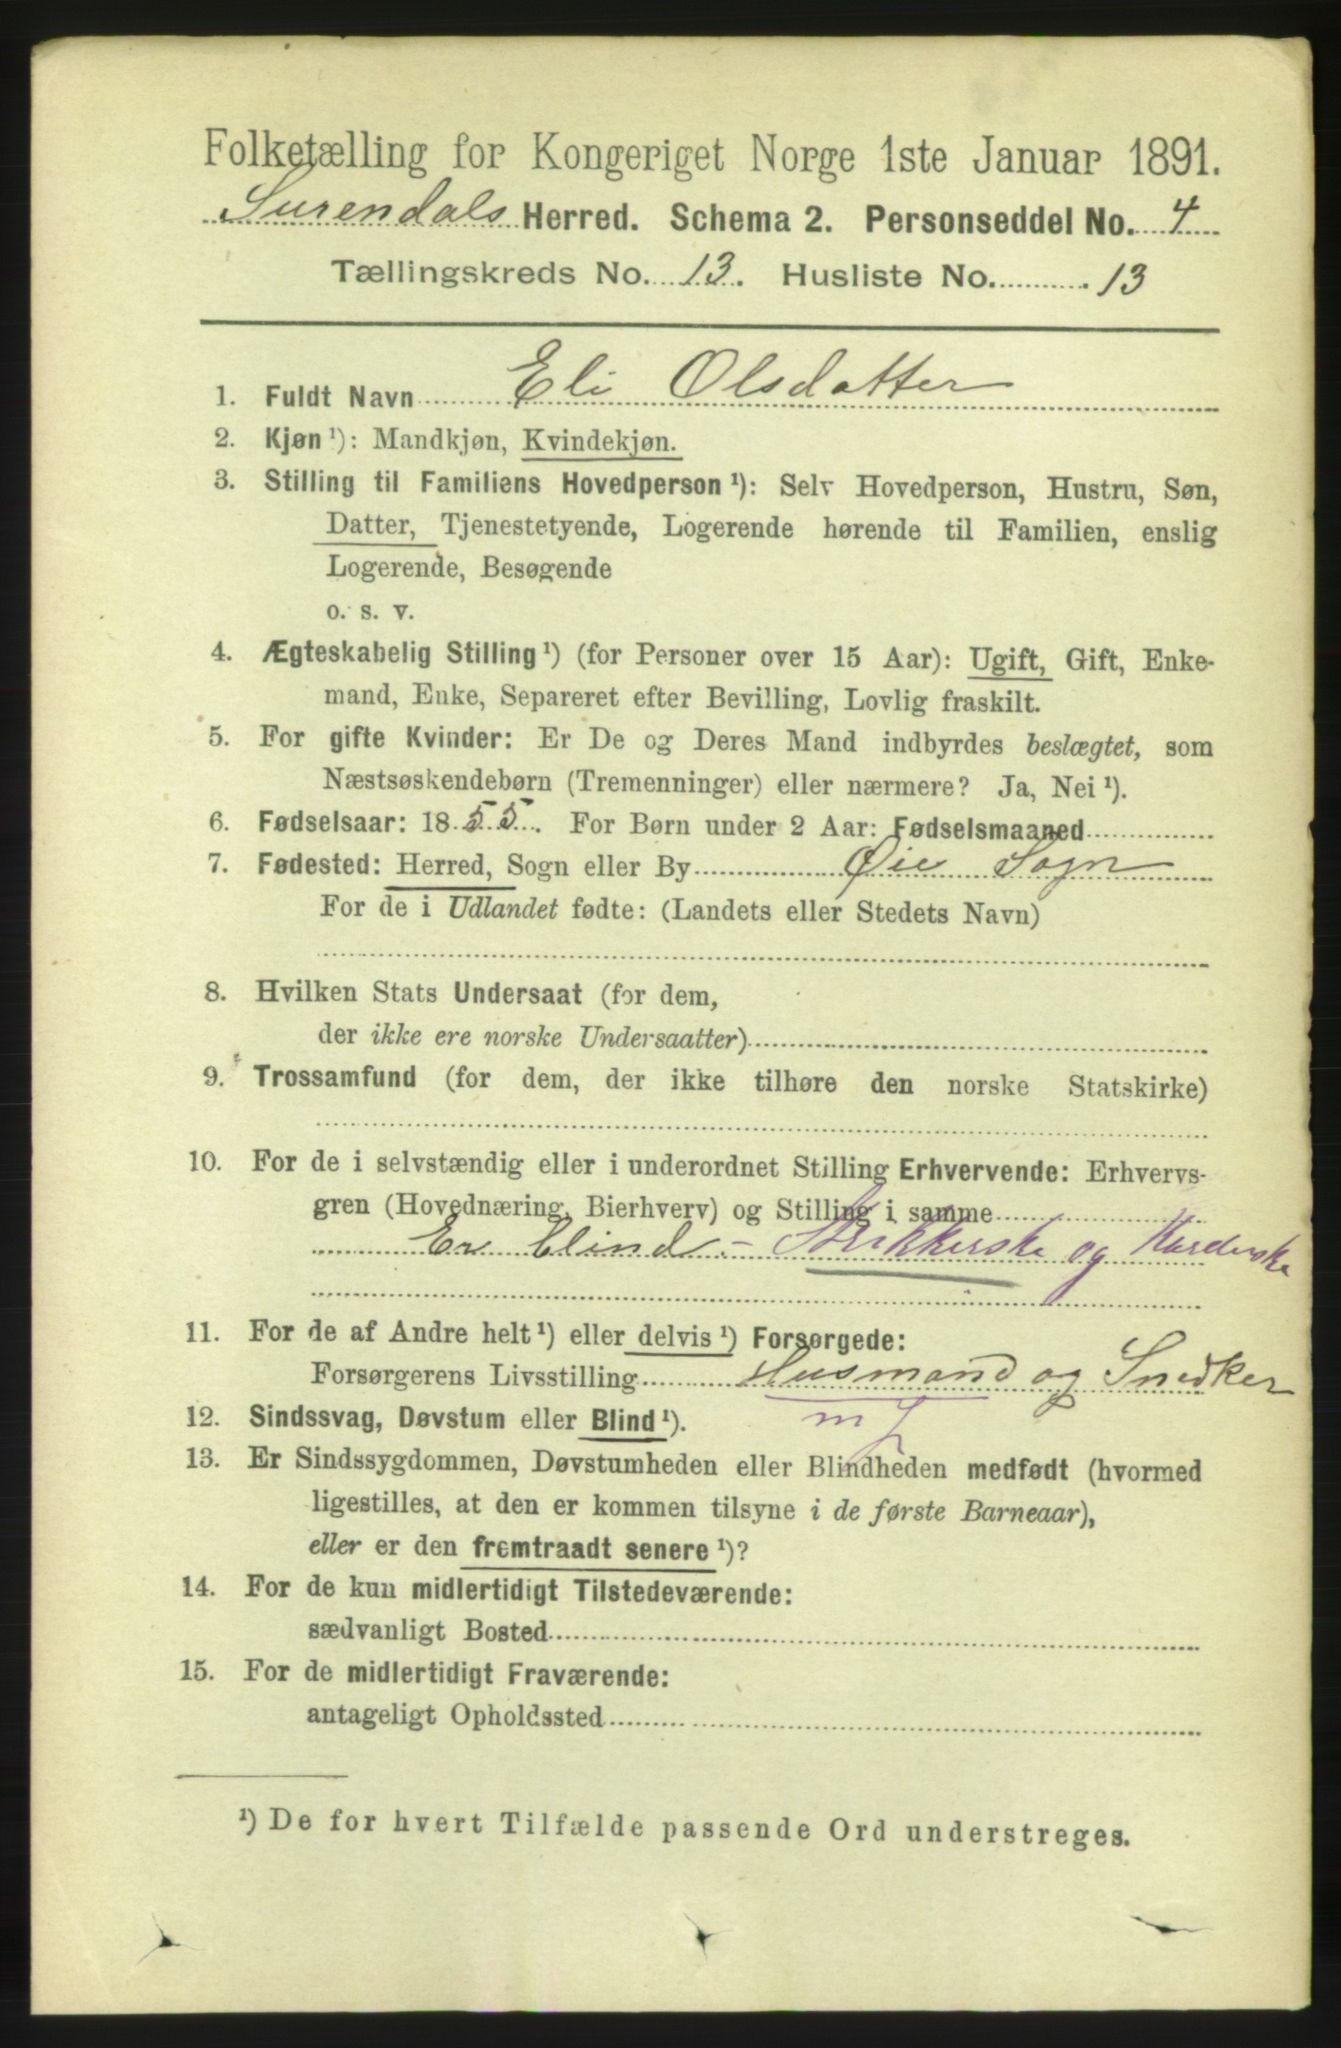 Folketælling for Kongeriget Norge 1ste Januar 1891.
Surendals Herred. Schema 2. Personseddel No. 4
Tællingskreds No. 13. Husliste No. 13
1. Fuldt Navn Eli Olsdatter
2. Kjøn ¹): Mandkjøn, Kvindekjøn.
3. Stilling til Familiens Hovedperson ¹): Selv Hovedperson, Hustru, Søn,
Datter, Tjenestetyende, Logerende hørende til Familien, enslig
Logerende, Besøgende
o. s. v.
4. Ægteskabelig Stilling ¹) (for Personer over 15 Aar): Ugift, Gift, Enke-
mand, Enke, Separeret efter Bevilling, Lovlig fraskilt.
5. For gifte Kvinder: Er De og Deres Mand indbyrdes beslægtet, som
Næstsøskendebørn (Tremenninger) eller nærmere? Ja, Nei ¹).
6. Fødselsaar: 1855. For Børn under 2 Aar: Fødselsmaaned
7. Fødested: Herred, Sogn eller By Øie Sogn
For de i Udlandet fødte: (Landets eller Stedets Navn)
8. Hvilken Stats Undersaat (for dem,
der ikke ere norske Undersaatter)
9. Trossamfund (for dem, der ikke tilhøre den norske Statskirke)
10. For de i selvstændig eller i underordnet Stilling Erhvervende: Erhvervs-
gren (Hovednæring, Bierhverv) og Stilling i samme
Er blind - Strikkerske og Karderske
11. For de af Andre helt ¹) eller delvis ¹) Forsørgede:
Forsørgerens Livsstilling Husmand og Snedker
12. Sindssvag, Døvstum eller Blind ¹). m J
13. Er Sindssygdommen, Døvstumheden eller Blindheden medfødt (hvormed
ligestilles, at den er kommen tilsyne i de første Barneaar),
eller er den fremtraadt senere ¹)?
14. For de kun midlertidigt Tilstedeværende:
sædvanligt Bosted
15. For de midlertidigt Fraværende:
antageligt Opholdssted
¹) De for hvert Tilfælde passende Ord understreges.